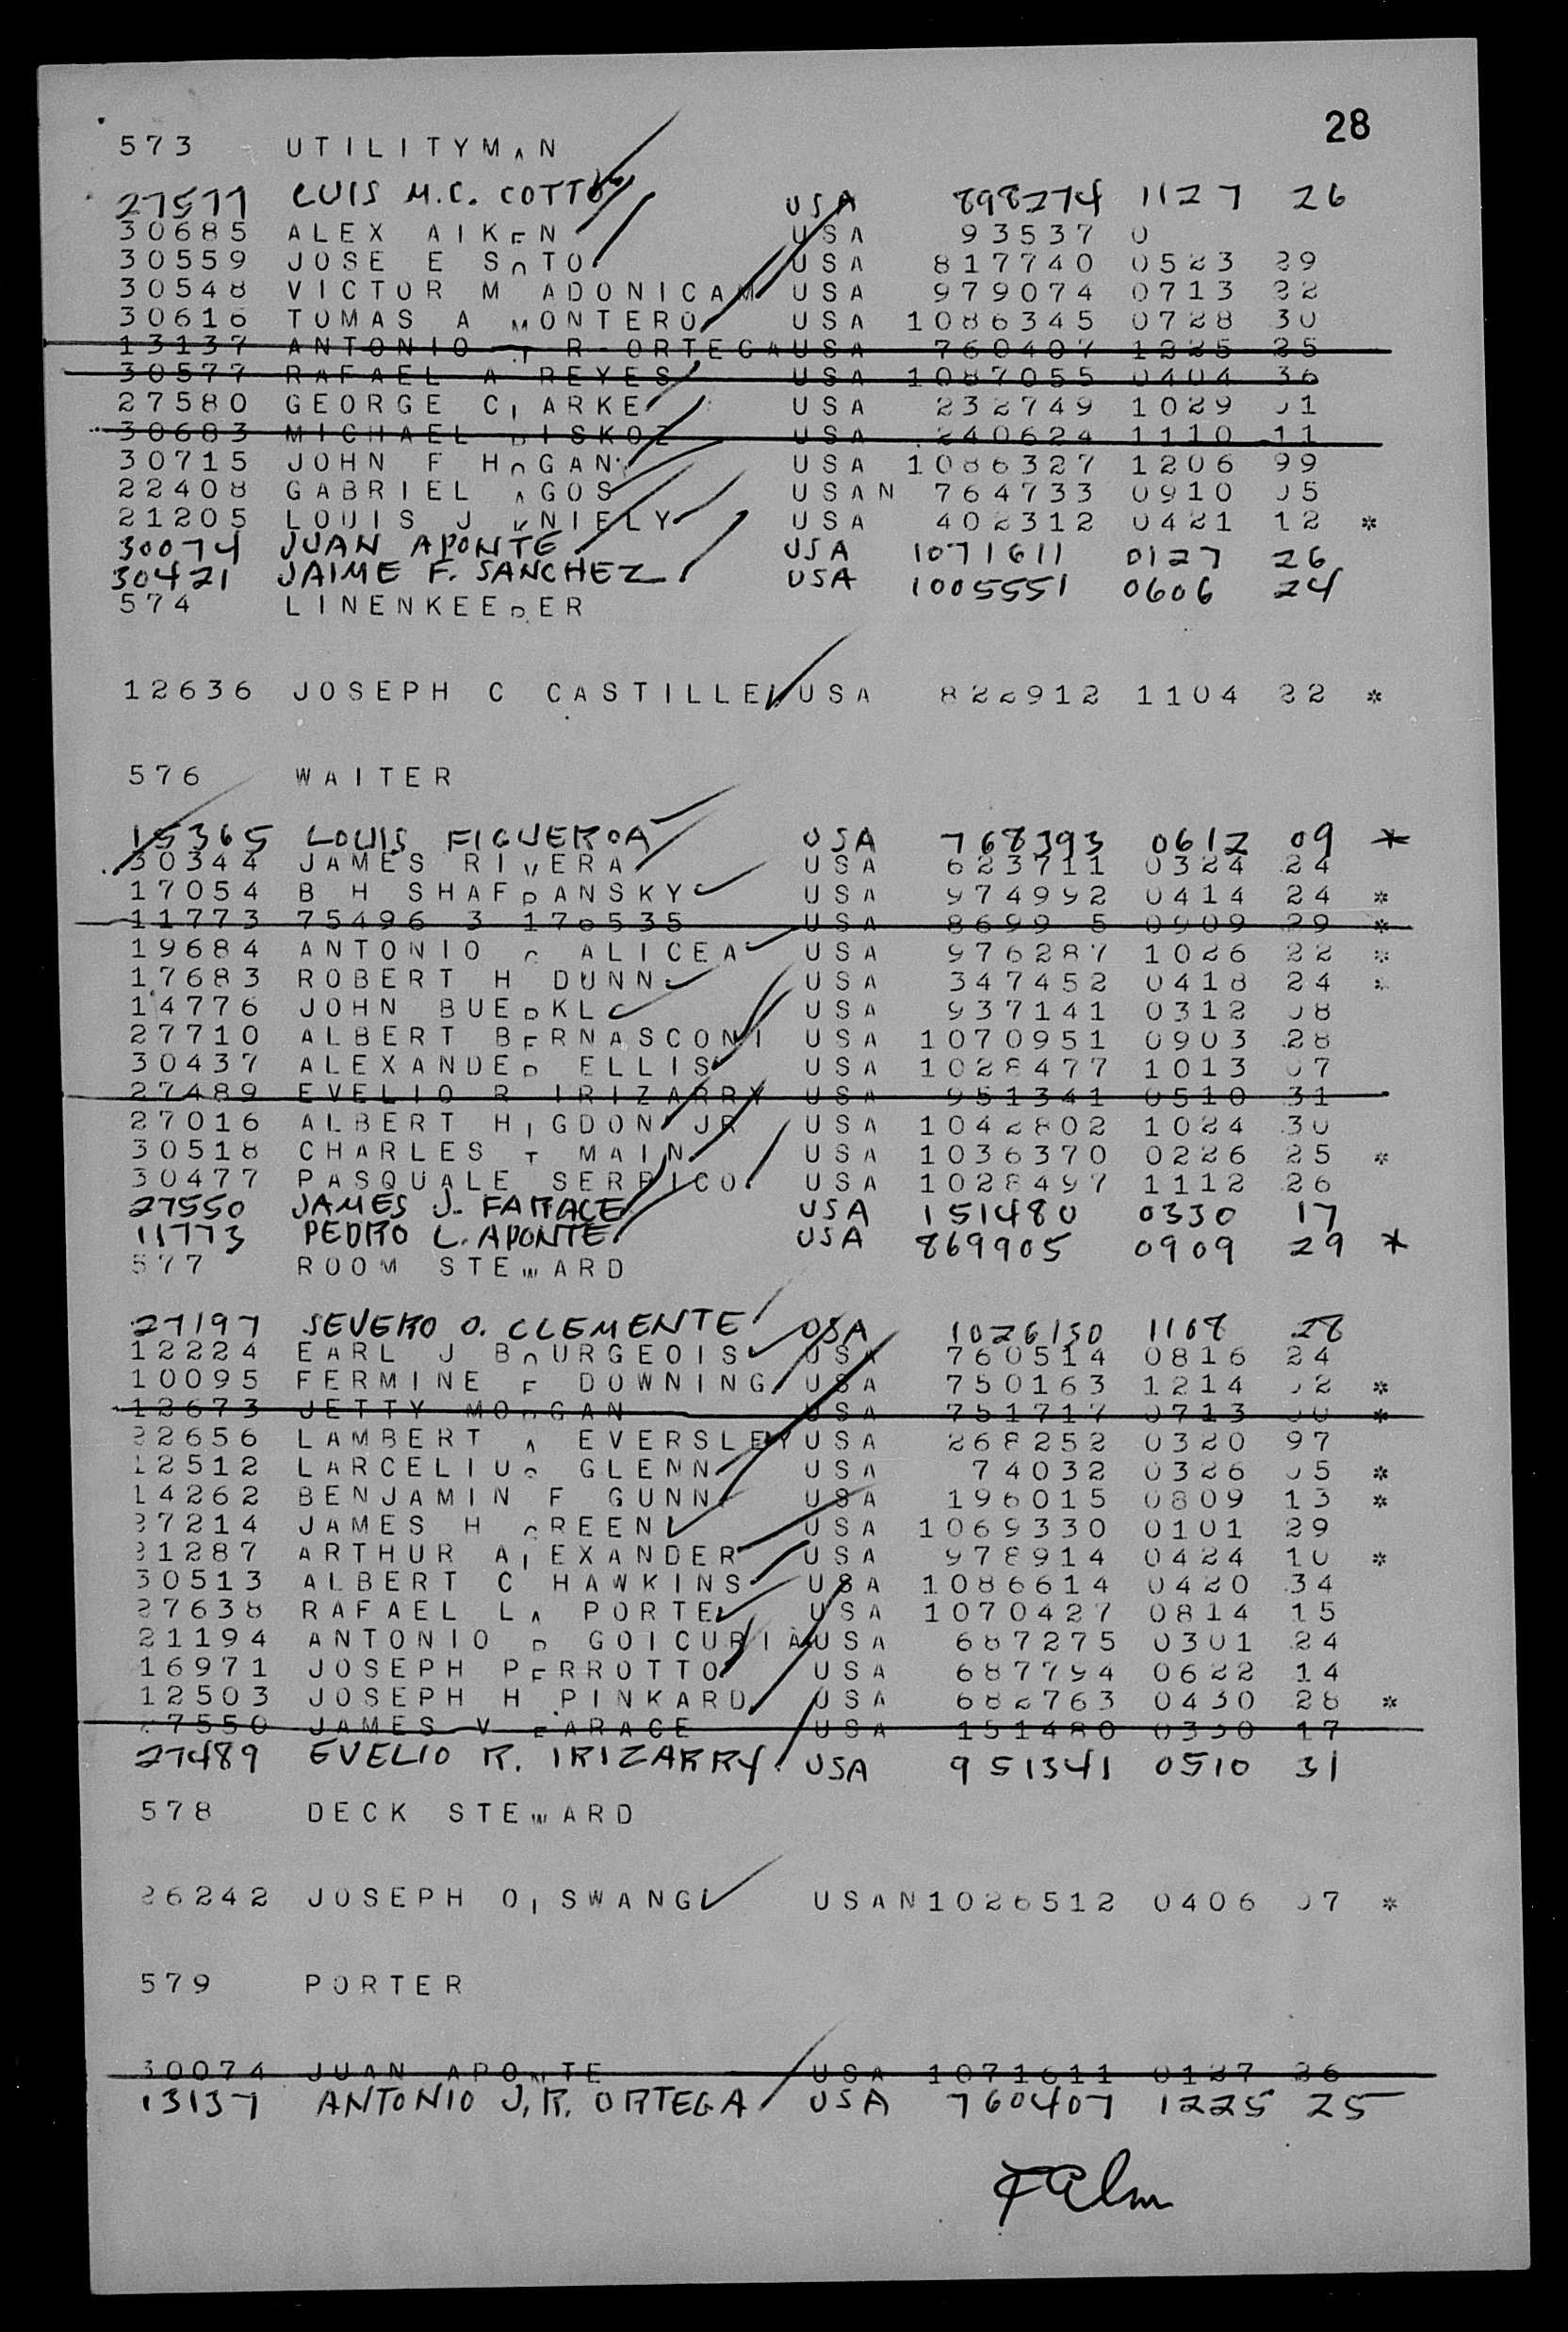 28
573 UTILITYMAN
27577 LUIS M.C. COTTO USA 898274 1127 26
30685 ALEX AIKEN USA 93537 0
30559 JOSE E SOTO USA 817740 0523 29
30548 VICTOR M ADONICAM USA 979074 0713 22
30616 TOMAS A MONTERO USA 1086345 0728 30
13137 ANTONIO J R ORTEGA USA 760407 1225 25
30577 RAFAEL A REYES USA 1087055 0404 36
27580 GEORGE CLARKE USA 232749 1029 01
30683 MICHAEL DISKOZ USA 240624 1110 11
30715 JOHN F HOGAN USA 1086327 1206 99
22408 GABRIEL AGOS USAN 764733 0910 05
21205 LOUIS J KNIELY USA 402312 0421 12 *
30074 JUAN APONTE USA 1071611 0127 26
30421 JAIME F. SANCHEZ USA 1005551 0606 24
574 LINENKEEPER
12636 JOSEPH C CASTILLE USA 822912 1104 22 *
576 WAITER
15365 LOUIS FIGUEROA USA 768393 0612 09 *
30344 JAMES RIVERA USA 623711 0324 24
17054 B H SHAFRANSKY USA 974992 0414 24 *
11773 75496 3 176535 USA 8699 5 0909 29 *
19684 ANTONIO C ALICEA USA 976287 1026 22 *
17683 ROBERT H DUNN USA 347452 0418 24 *
14776 JOHN BUERKL USA 937141 0312 08
27710 ALBERT BERNASCONI USA 1070951 0903 28
30437 ALEXANDER ELLIS USA 1028477 1013 07
27489 EVELIO R IRIZARRY USA 951341 0510 31
27016 ALBERT HIGDON JR USA 1042802 1024 30
30518 CHARLES T MAIN USA 1036370 0226 25 *
30477 PASQUALE SERRICO USA 1028497 1112 26
27550 JAMES J. FARRACE USA 151480 0330 17
11773 PEDRO L. APONTE USA 869905 0909 29 *
577 ROOM STEWARD
27197 SEVERO O. CLEMENTE USA 1026130 1108 28
12224 EARL J BOURGEOIS USA 760514 0816 24
10095 FERMINE E DOWNING USA 750163 1214 02 *
12673 JETTY MORGAN USA 751717 0713 00 *
22656 LAMBERT A EVERSLEY USA 268252 0320 97
12512 LARCELIUS GLENN USA 74032 0326 05 *
14262 BENJAMIN F GUNN USA 196015 0809 13 *
27214 JAMES H GREEN USA 1069330 0101 29
21287 ARTHUR ALEXANDER USA 978914 0424 10 *
30513 ALBERT C HAWKINS USA 1086614 0420 34
27638 RAFAEL LA PORTE USA 1070427 0814 15
21194 ANTONIO P GOICURIA USA 687275 0301 24
16971 JOSEPH PERROTTO USA 687794 0622 14
12503 JOSEPH H PINKARD USA 682763 0430 28 *
27550 JAMES V FARACE USA 151480 0330 17
27489 EVELIO R. IRIZARRY USA 951341 0510 31
578 DECK STEWARD
26242 JOSEPH OLSWANG USAN 1026512 0406 07 *
579 PORTER
30074 JUAN APONTE USA 1071611 0127 26
13137 ANTONIO J.R. ORTEGA USA 760407 1225 25